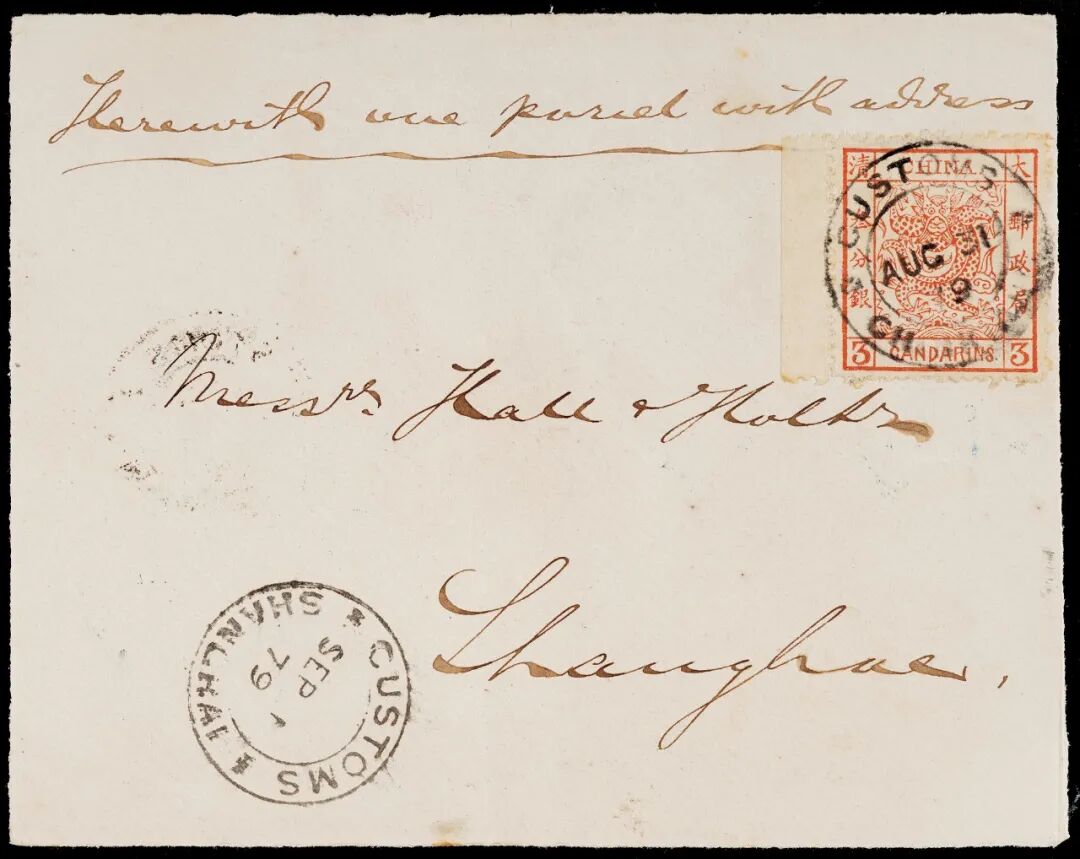 Herewith one parcel with address
大 CHINA. 清
郵政局
分銀
3 CANDARINS. 3
CUSTOMS
AUG 31
CH
Messrs Hall & Holtz
Shanghae,
CUSTOMS
SHANGHAI
SEP 1
79